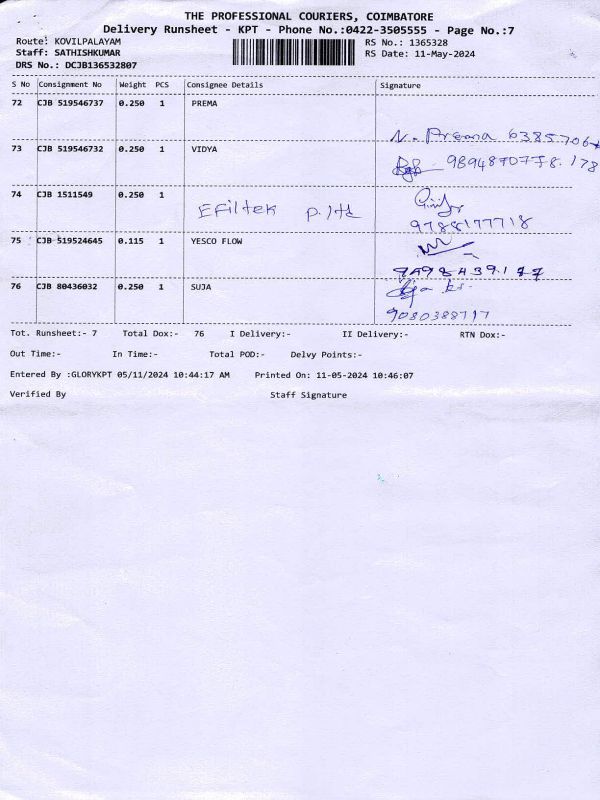 THE PROFESSIONAL COURIERS, COIMBATORE
Delivery Runsheet - KPT - Phone No.:0422-3505555 - Page No.:7
Route: KOVILPALAYAM RS No.: 1365328
Staff: SATHISHKUMAR RS Date: 11-May-2024
DRS No.: DCJB136532807
S No Consignment No Weight PCS Consignee Details Signature
72 CJB 519546737 0.250 1 PREMA
N. Prema 6385706
73 CJB 519546732 0.250 1 VIDYA
74 CJB 1511549 0.250 1
Efiltek P. ltd
9788177718
75 CJB 519524645 0.115 1 YESCO FLOW
76 CJB 80436032 0.250 1 SUJA
Tot. Runsheet:- 7 Total Dox:- 76 I Delivery:- II Delivery:- RTN Dox:-
Out Time:- In Time:- Total POD:- Delvy Points:-
Entered By :GLORYKPT 05/11/2024 10:44:17 AM Printed On: 11-05-2024 10:46:07
Verified By Staff Signature